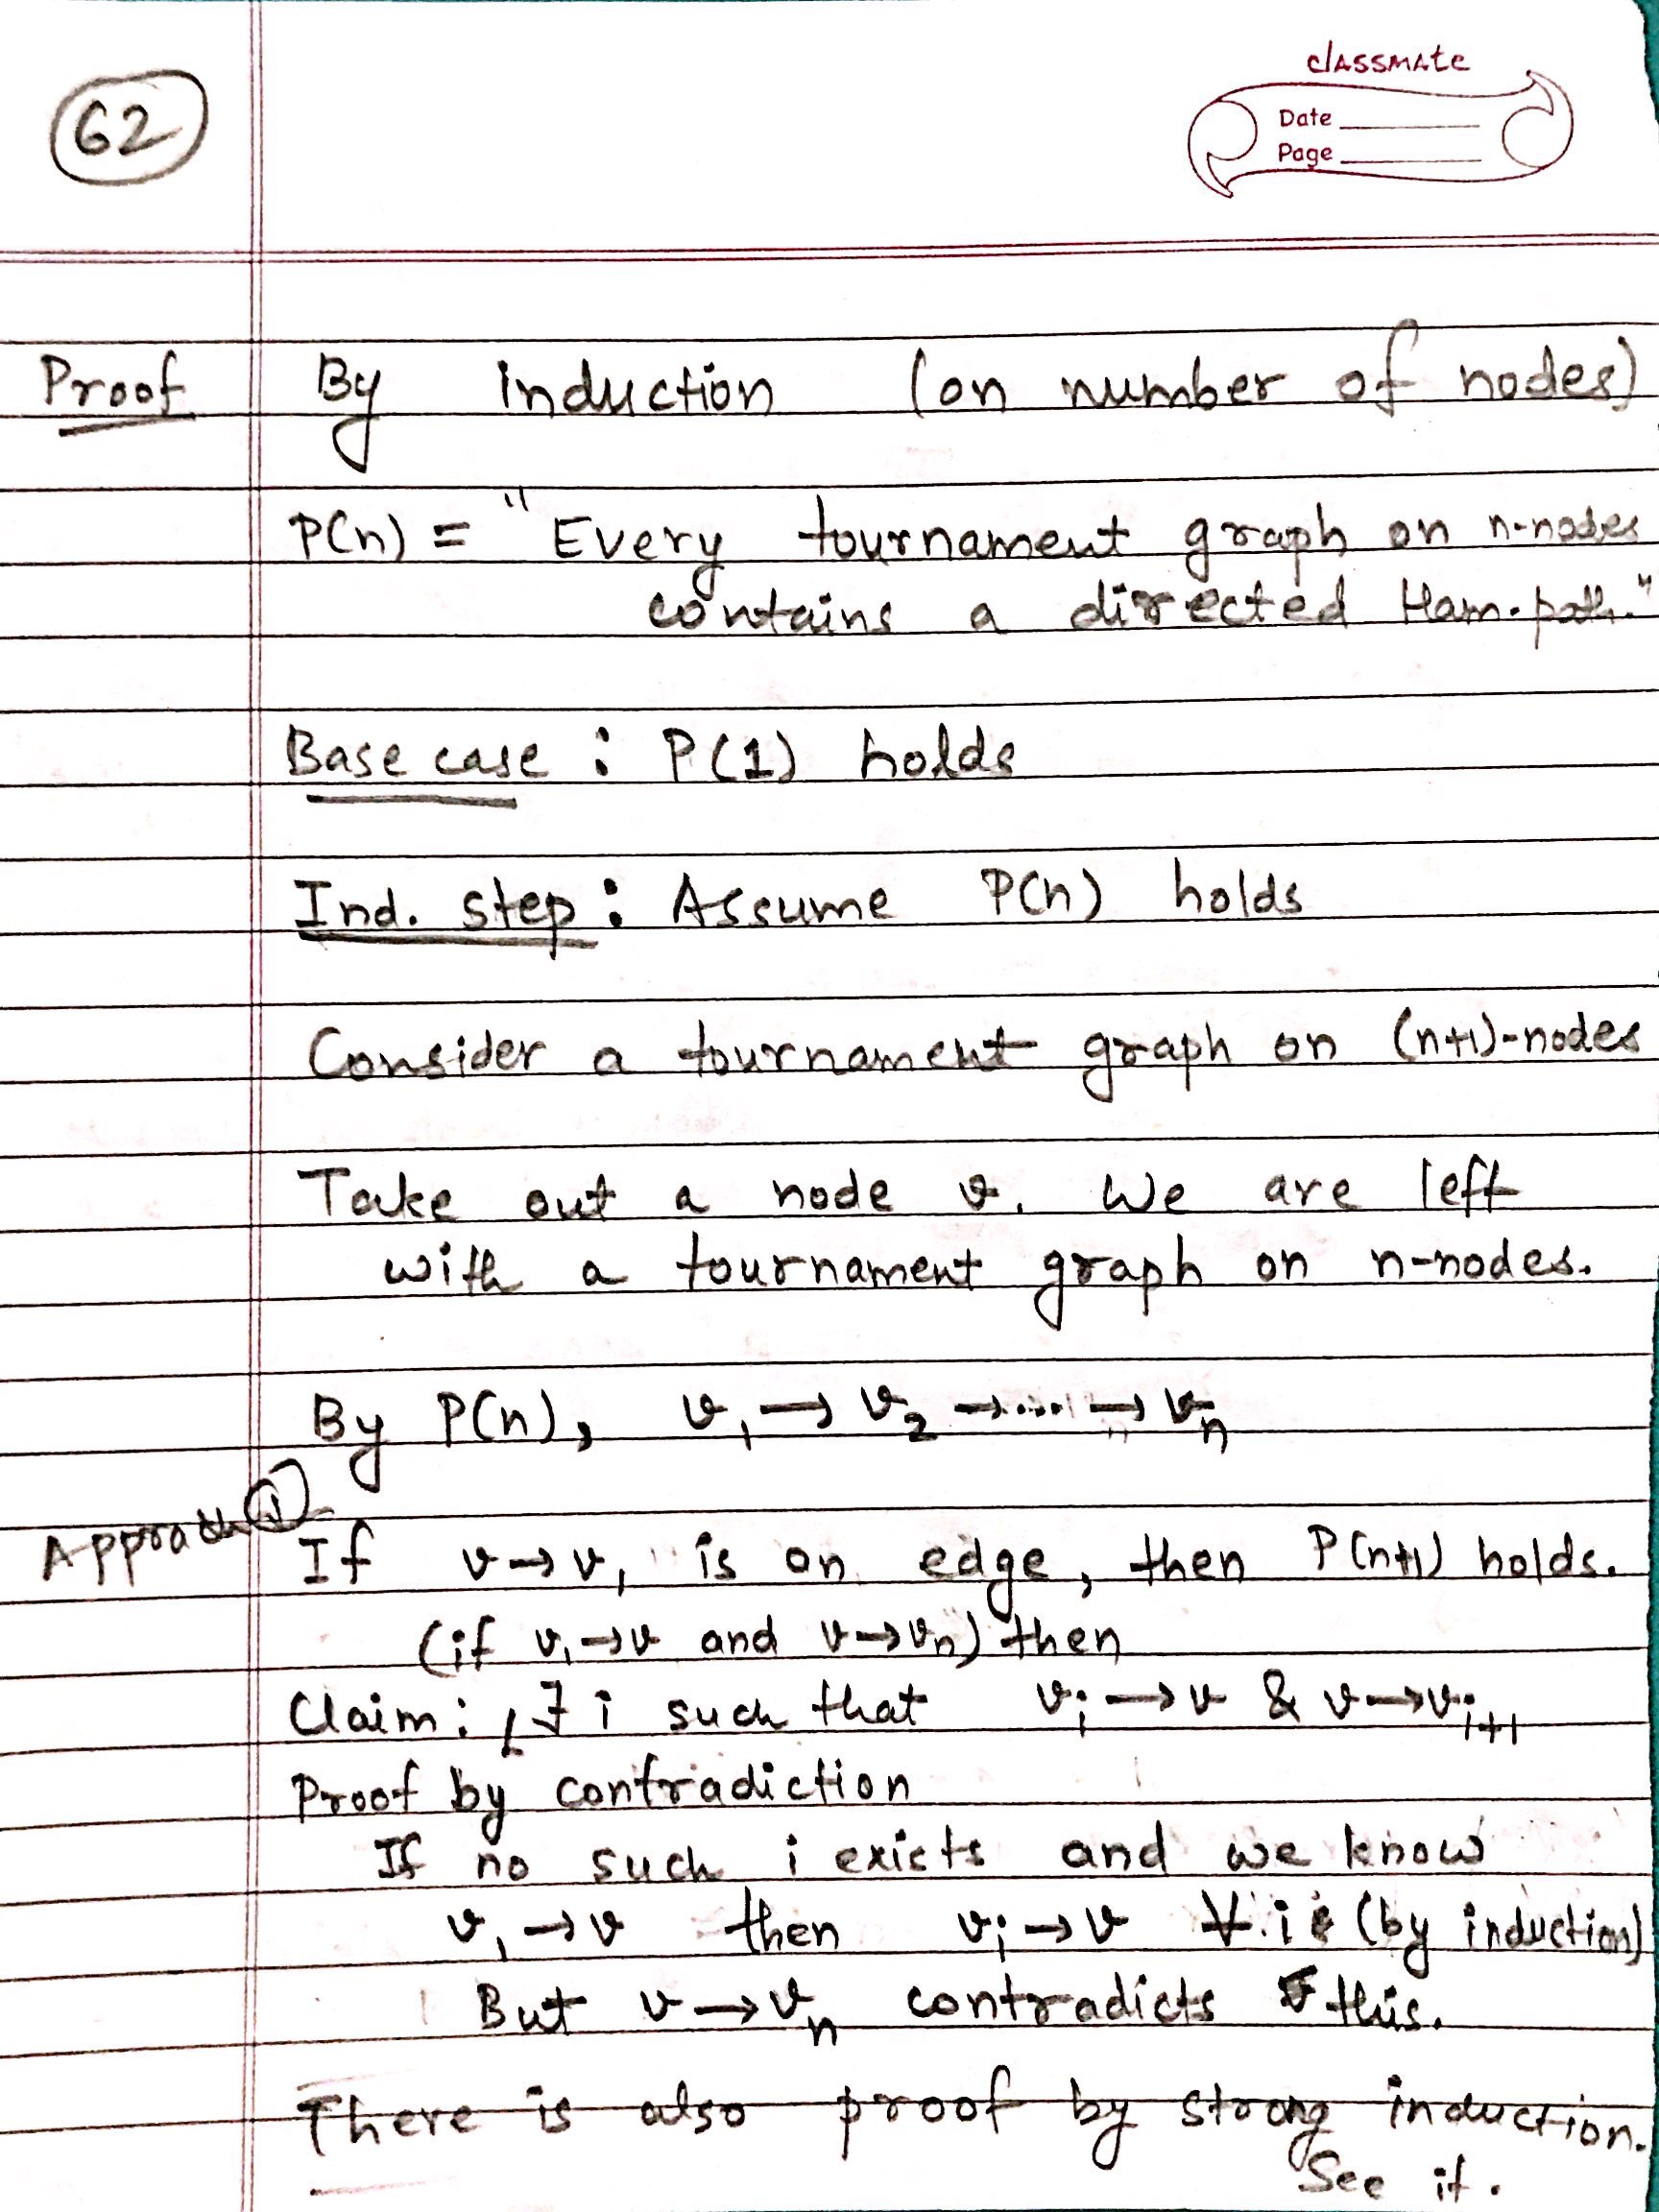 62
classmate
Date
Page
Proof By induction (on number of nodes)
P(n) = "Every tournament graph on n-nodes
contains a directed Ham-path."
Base case : P(1) holds
Ind. step : Assume P(n) holds
Consider a tournament graph on (n+1)-nodes
Take out a node v. We are left
with a tournament graph on n-nodes.
By P(n), v₁ → v₂ → ..... → vₙ
Approach ①
If v → v₁ is an edge, then P(n+1) holds.
(if v₁ → v and v → vₙ) then
Claim : ∃ i such that vᵢ → v & v → vᵢ₊₁
Proof by contradiction
If no such i exists and we know
v₁ → v then vᵢ → v ∀ i (by induction)
But v → vₙ contradicts this.
There is also proof by strong induction.
See it.